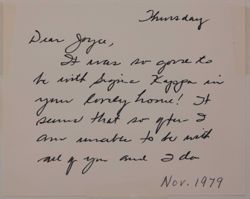 Thursday
Dear Joyce,
It was so good to
be with Sigma Kappa in
your lovely home! It
seems that so often I
am unable to be with
all of you and I do
Nov. 1979